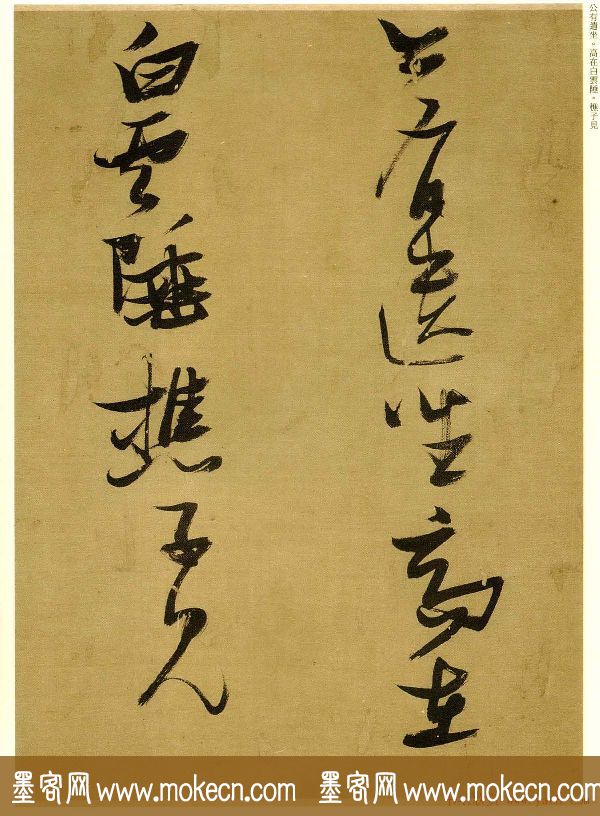 公有遺坐。高在白雲陲。樵子見
公有遺坐高在
白雲陲樵子見
墨客网 www.mokecn.com 墨客网 www.mokecn.com